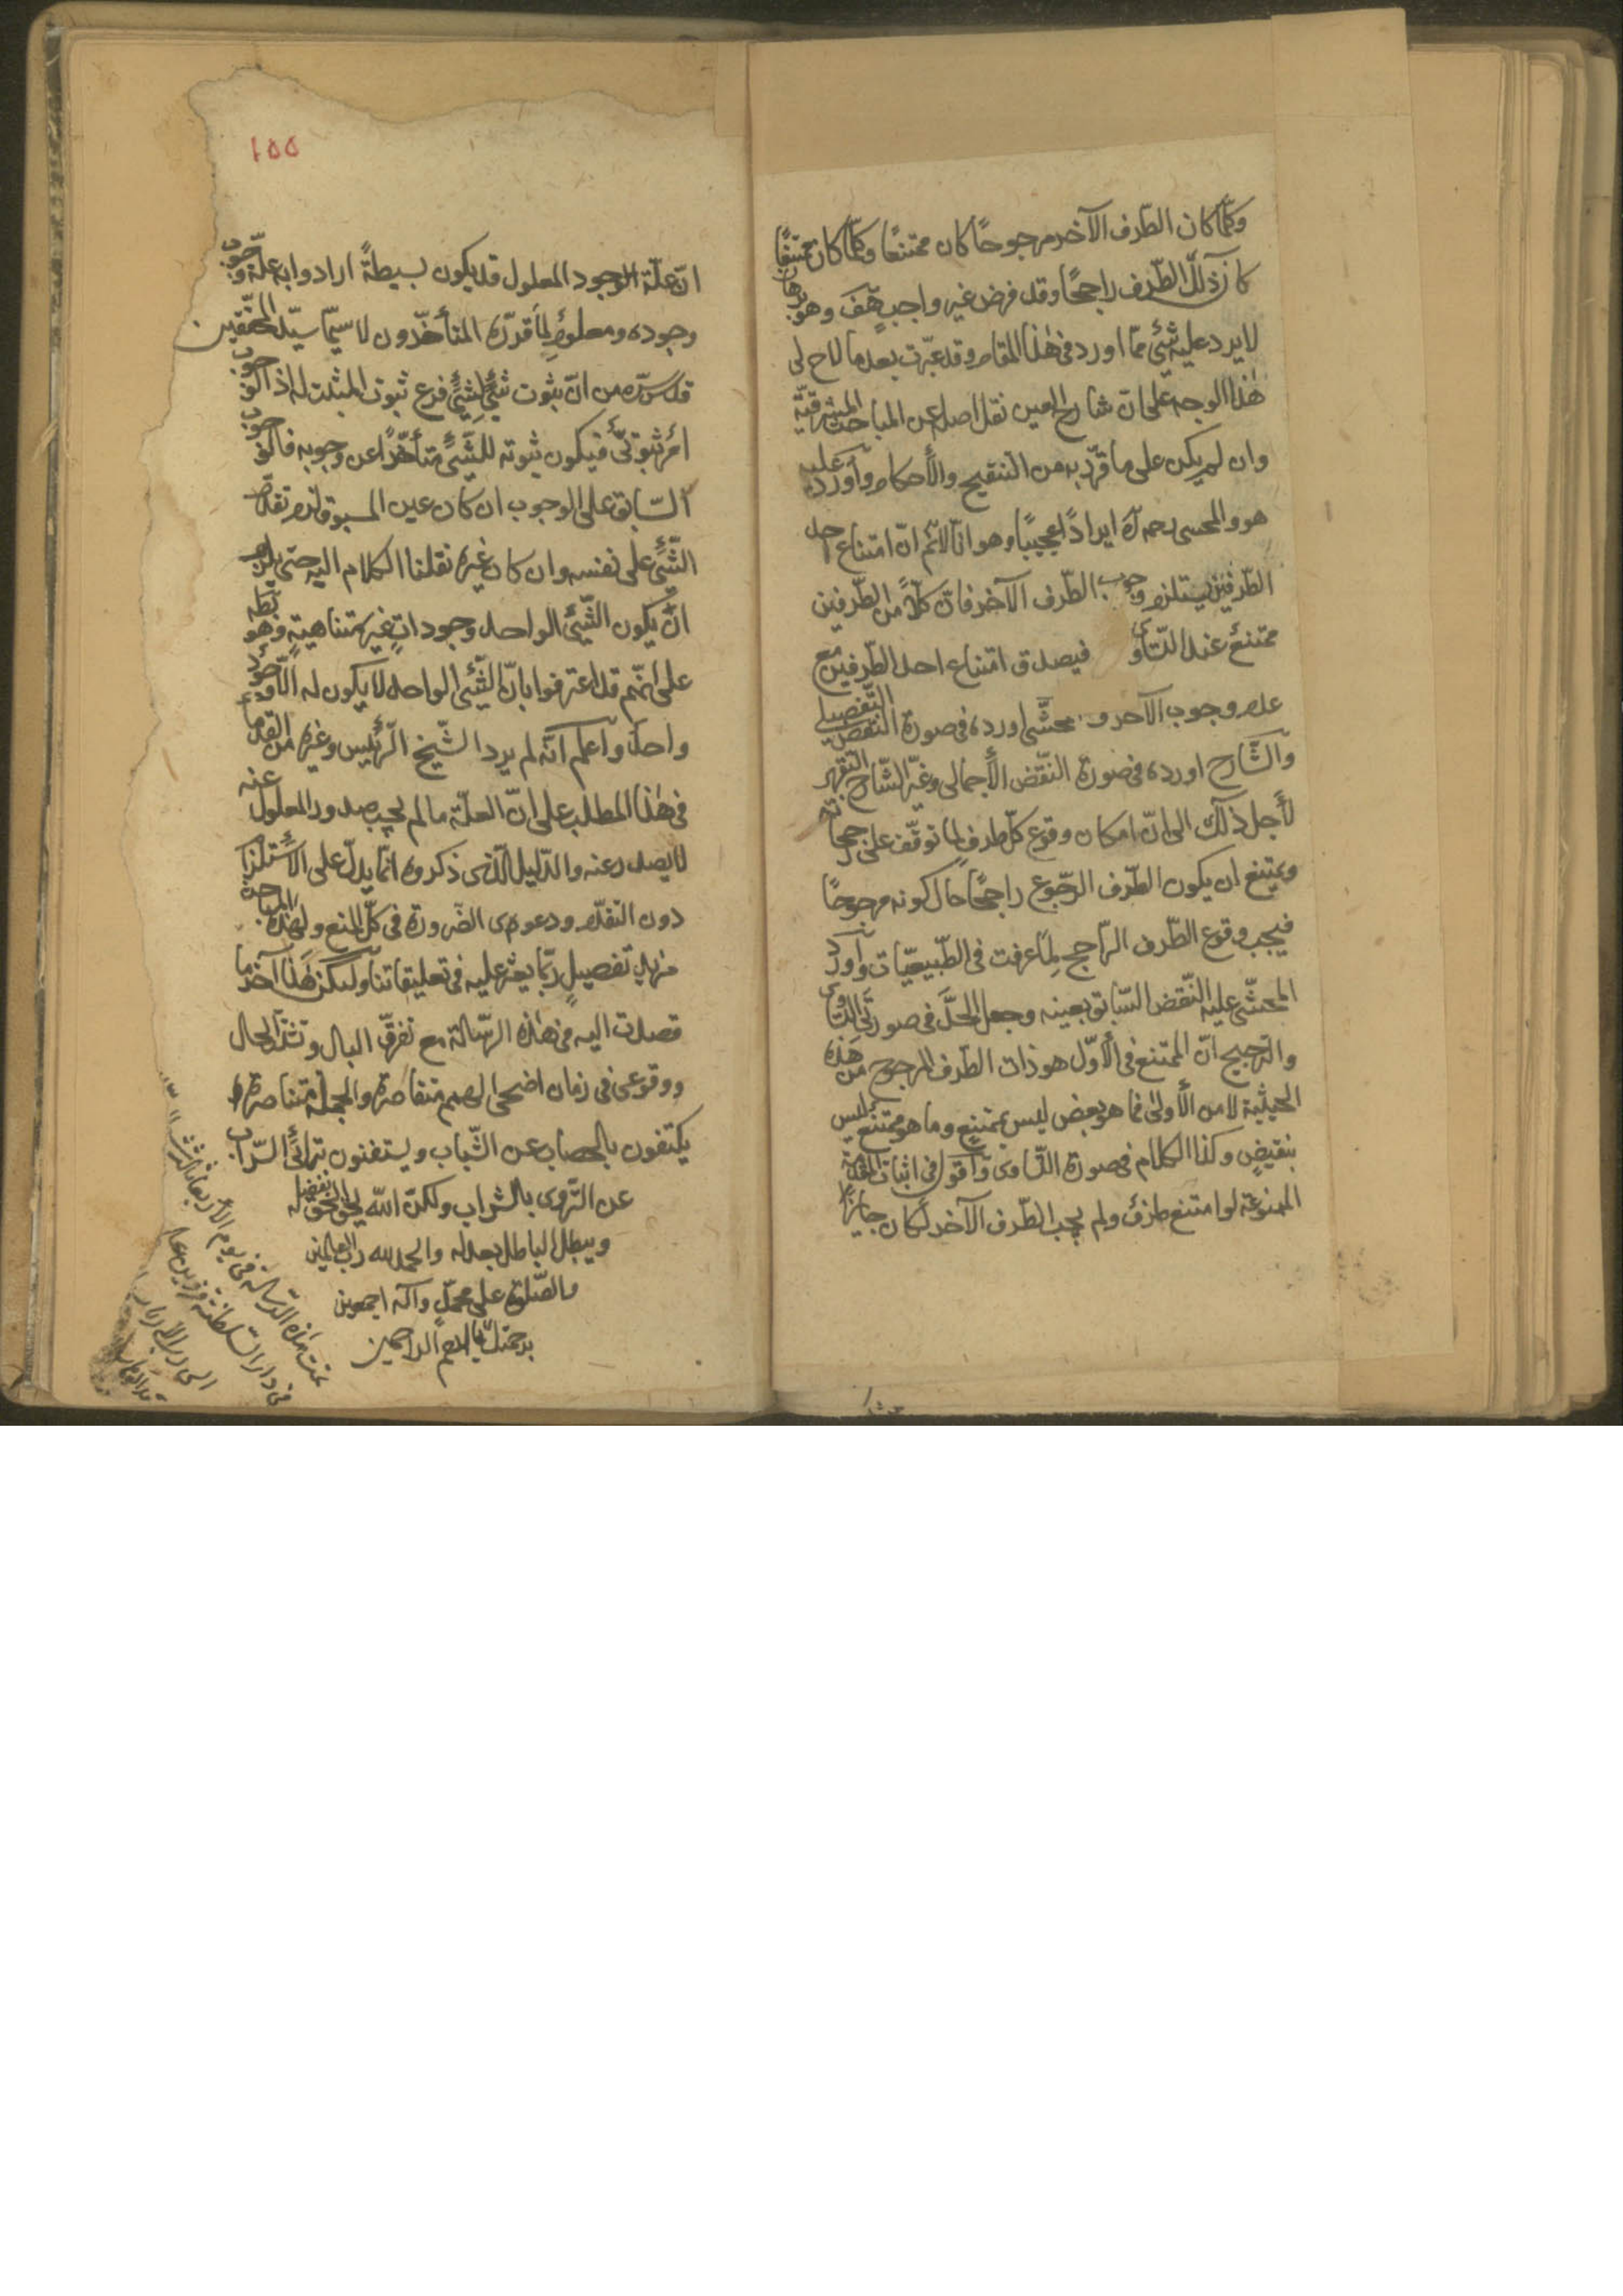 وكلّما كان الطّرف الآخر مرجوحًا كان ممتنعًا وكلّما كان ممتنعًا
كان ذلك الطّرف راجحًا وقد فرض غير واجبٍ هّف وهو برهان
لا يرد عليه شئ ممّا اورد فى هذا المقام وقد عبّرت بعد ما لاح لى
هذا الوجه على انّ شارح العين نقل اصله عن المباحث المشرقيّة
وان لم يكن على ما قرّر به من التنقيح والأحكام وأورد عليه
هو والمحشى رحمه الله ايرادًا عجيبًا وهو انّا لا نّم انّ امتناع احد
الطّرفين يستلزم وجوب الطّرف الآخر فانّ كلًّا من الطّرفين
ممتنعٌ عند التّساوى فيصدق امتناع احد الطّرفين مع
عدم وجوب الآخر و محشّى اورده فى صورة النّقض التّفصيلى
والشّارح اورده فى صورة النّقض الأجمالى وغيّر الشّارح التّقرير
لأجل ذلك الى انّ امكان وقوع كلّ طرف لما توقّف على رجحانه
ويمتنع ان يكون الطّرف المرجوح راجحًا حال كونه مرجوحًا
فيجب وقوع الطّرف الراجح لما عرفت فى الطّبيعيّات وأورد
المحشّى عليه النّقض السّابق بعينه وجعل الحلّ فى صورتى التّساوى
والترجيح انّ الممتنع فى الأوّل هو ذات الطّرف المرجوح من هذه
الحيثية لا من الأولى فما هو بعض ليس بممتنعٍ وما هو ممتنع ليس
بنقيضٍ وكذا الكلام فى صورة التّساوى وأقول فى اثبات المقدّمة
الممنوعة لو امتنع طرفٌ ولم يجب الطّرف الآخر لكان جايزًا
١٥٥
انّ علّة الوجود المعلول قد يكون بسيطةً ارادوا به علّة وجوب
وجوده ومعلوم لما قدّره المتأخّرون لا سيّما سيّد المحقّقين
قدّس سرّه من انّ ثبوت شئٍ لشئٍ فرع ثبوت المثبت له اذ الوجوب
امر ثبوتىّ فيكون ثبوته للشّئ متأخّرًا عن وجوبه فالوجوب
السّابق على الوجوب ان كان عين المسبوق لزم تقدّم
الشّئ على نفسه وان كان غيره نقلنا الكلام اليه حتى يلزم
ان يكون الشّئ الواحد وجوداتٍ غير متناهيةٍ وهو
على انّهم قد اعترفوا بانّ الشّئ الواحد لا يكون له الّا وجود
واحد واعلم انّه لم يرد الشّيخ الرّئيس وغيره من القدماء
فى هذا المطلب على انّ العلّة ما لم يجب صدور المعلول عنه
لا يصدر عنه والدّليل الّذى ذكروه انّما يدلّ على الأستلزام
دون التقدّم ودعوى الضّرورة فى كلّ المنع ولهذه المباحث
مزيد تفصيلٍ ربّما يعثر عليه فى تعليقاتنا وليكن هذا آخر ما
قصدت اليه فى هذه الرّسالة مع تفرّق البال وتشتّت الحال
ووقوعى فى زمان اضحى الهمم متقاصرة والجهلة متناصرة
يكتفون بالحصاب عن الشّباب ويستغنون بترائى السّراب
عن التّروى بالشراب ولكنّ الله يحق الحقّ بفضله
ويبطل الباطل بعدله والحمد لله ربّ العالمين
والصّلوة على محمّدٍ وآله اجمعين
برحمتك يا ارحم الراحمين
تمت هذه الرسالة فى يوم الأربعاء
فى دار السلطنة قزوين